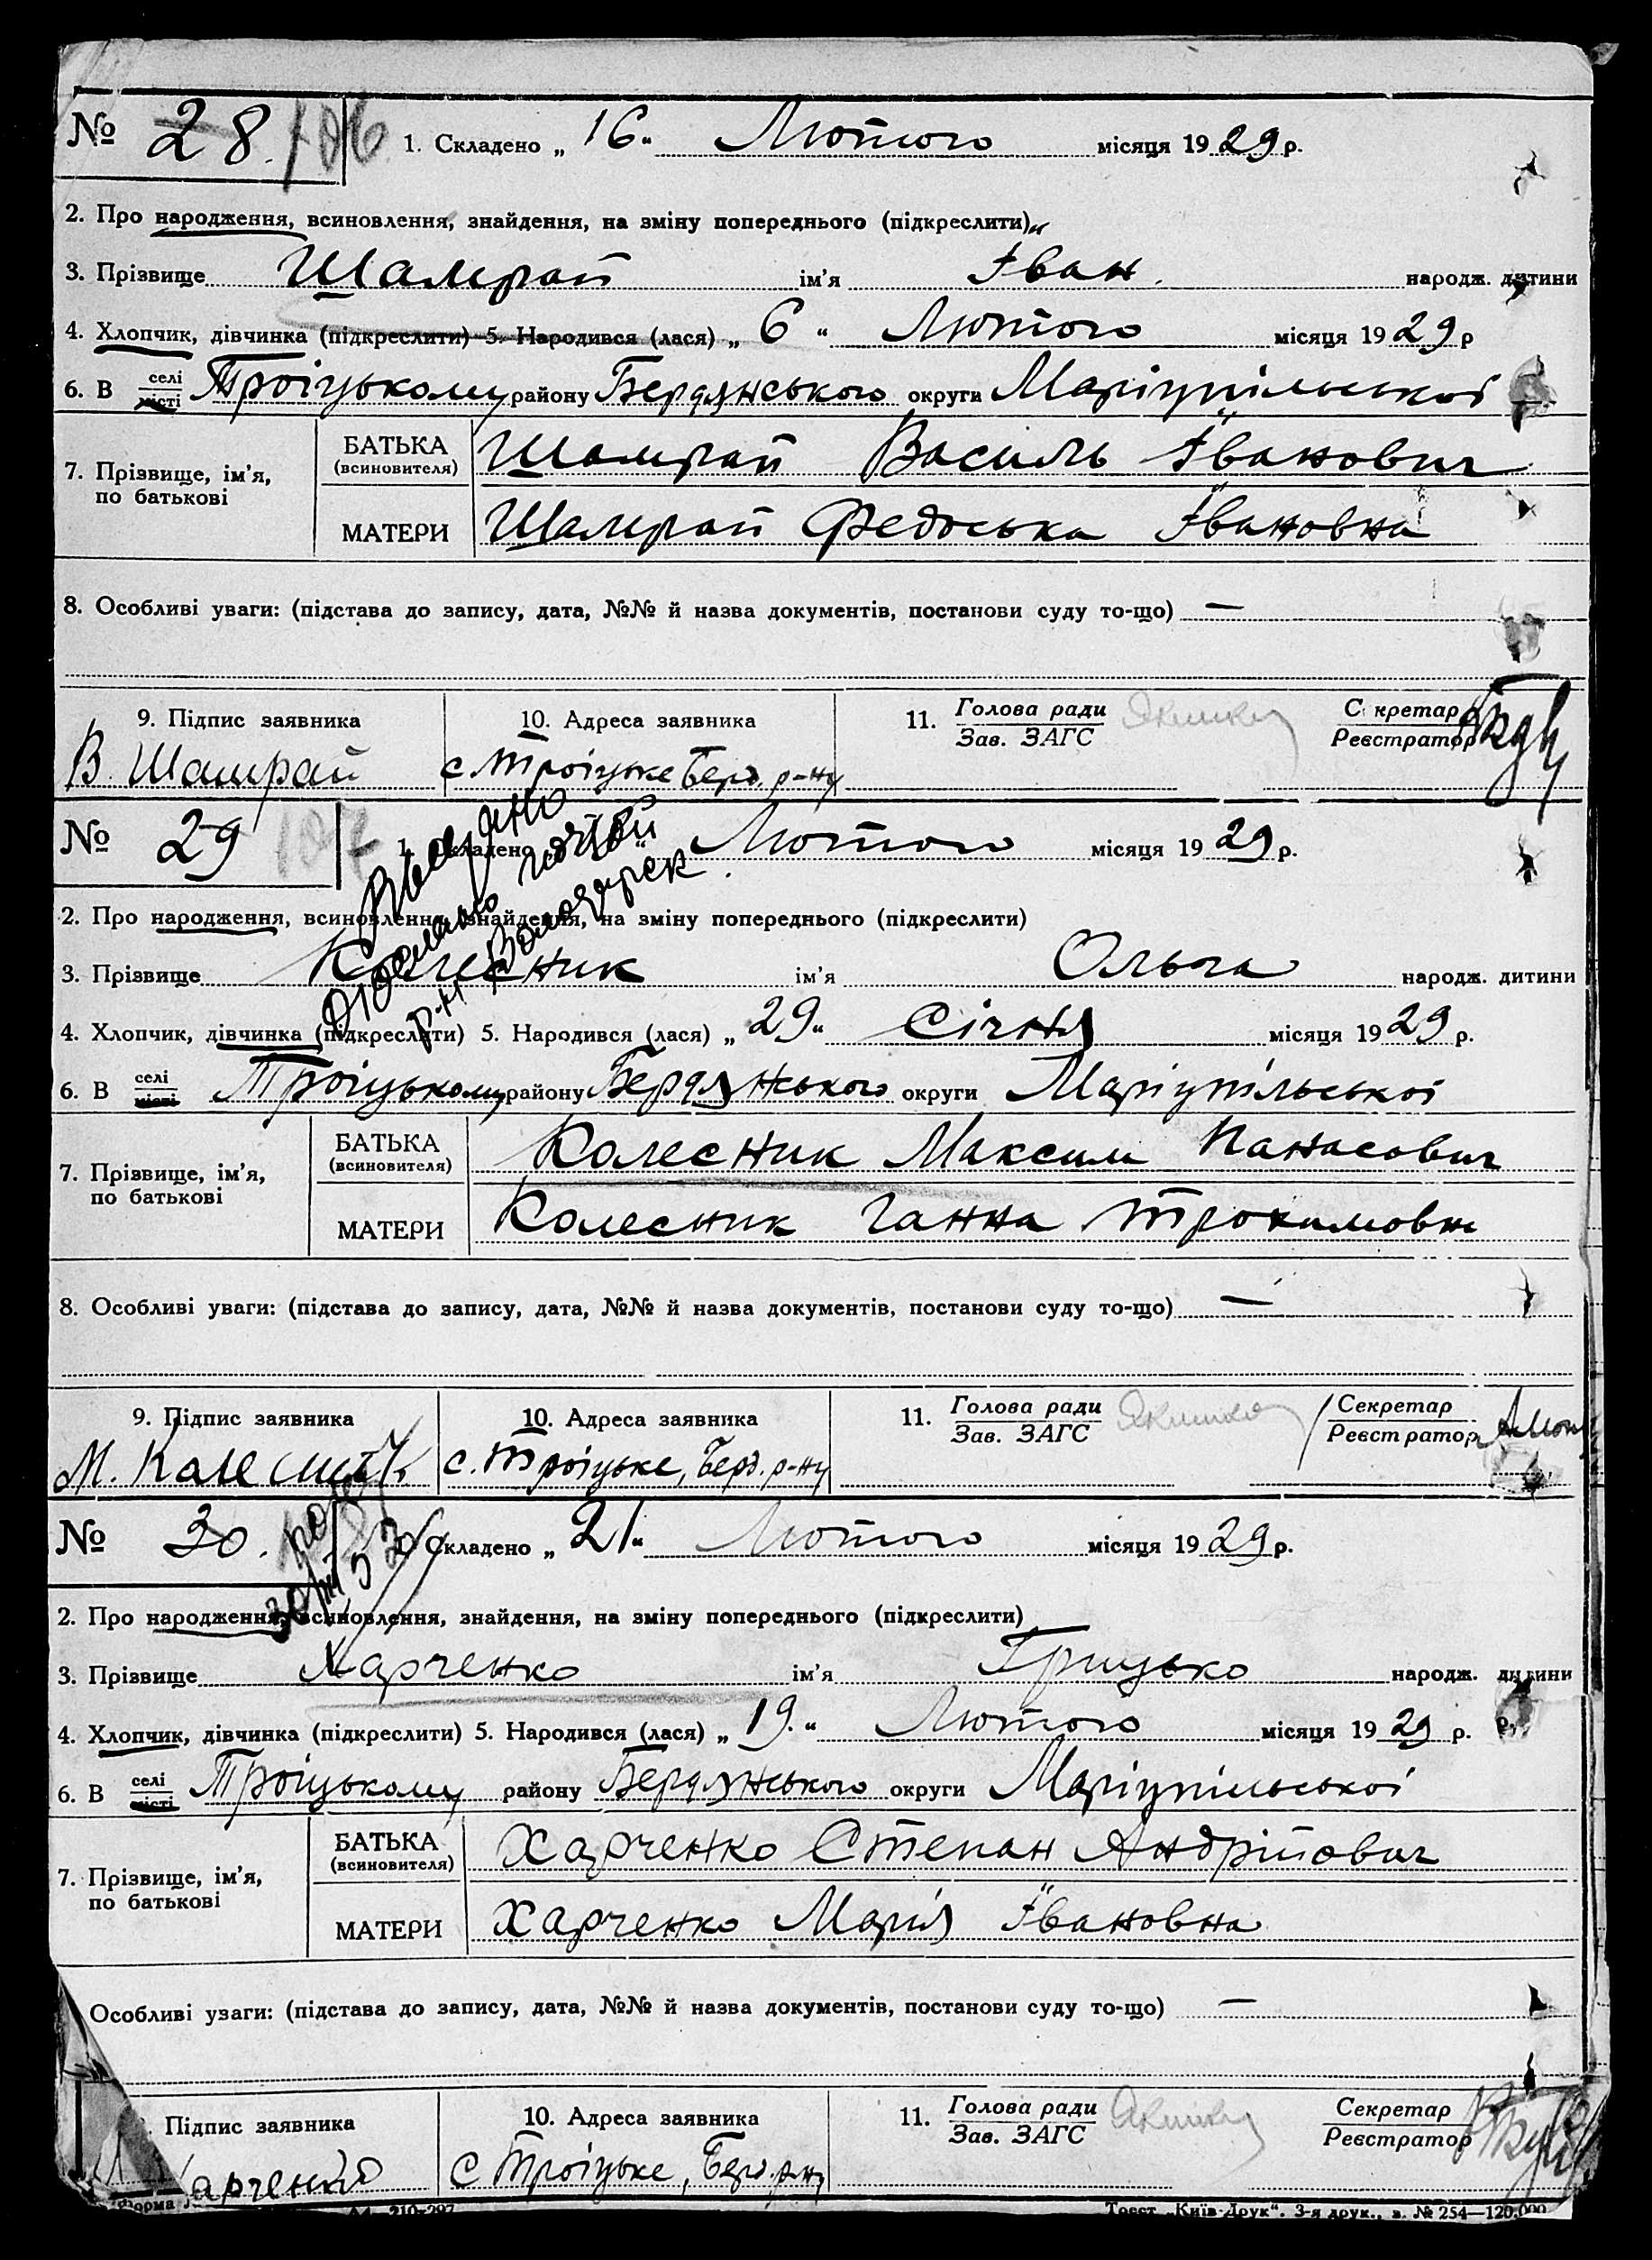 № 28. 106 1. Складено „ 16 “ Лютого місяця 1929 р.
2. Про народження, всиновлення, знайдення, на зміну попереднього (підкреслити)
3. Прізвище Шамрай ім’я Іван. народж. дитини
4. Хлопчик, дівчинка (підкреслити) 5. Народився (лася) „ 6 “ Лютого місяця 1929 р
6. В селі місті Троіцькому району Бердянського округи Маріупільськоі
7. Прізвище, ім’я, по батькові БАТЬКА (всиновителя) Шамрай Василь Іванович
МАТЕРИ Шамрай Федоська Івановна
8. Особливі уваги: (підстава до запису, дата, №№ й назва документів, постанови суду то-що) —
9. Підпис заявника 10. Адреса заявника 11. Голова ради Зав. ЗАГС Секретар Реєстратор
В. Шамрай с Троіцьке Берд. р-ну
№ 29 107 1. Складено Лютого місяця 1929 р.
Выдано
2. Про народження, всиновлення, знайдення, на зміну попереднього (підкреслити)
3. Прізвище Колесник ім’я Ольга народж. дитини
4. Хлопчик, дівчинка (підкреслити) 5. Народився (лася) „ 29 “ Січня місяця 1929 р.
6. В селі місті Троіцькому району Бердянського округи Маріупільськоі
7. Прізвище, ім’я, по батькові БАТЬКА (всиновителя) Колесник Максим Панасович
МАТЕРИ Колесник Ганна Трохимовн
8. Особливі уваги: (підстава до запису, дата, №№ й назва документів, постанови суду то-що) —
9. Підпис заявника 10. Адреса заявника 11. Голова ради Зав. ЗАГС Секретар Реєстратор
М. Колесник с. Троіцьке, Берд. р-ну
№ 30. Складено „ 21 “ Лютого місяця 1929 р.
2. Про народження, всиновлення, знайдення, на зміну попереднього (підкреслити)
3. Прізвище Харченко ім’я Грицько народж. дитини
4. Хлопчик, дівчинка (підкреслити) 5. Народився (лася) „ 19. “ Лютого місяця 1929 р.
6. В селі місті Троіцькому району Бердянського округи Маріупільськоі
7. Прізвище, ім’я, по батькові БАТЬКА (всиновителя) Харченко Степан Андрійович
МАТЕРИ Харченко Марія Івановна
Особливі уваги: (підстава до запису, дата, №№ й назва документів, постанови суду то-що) —
Підпис заявника 10. Адреса заявника 11. Голова ради Зав. ЗАГС Секретар Реєстратор
арченко с Троіцьке, Берд. р-ну
Форма А4—210-297 Трест „Київ-Друк“. 3-я друк., з. № 254—120.000